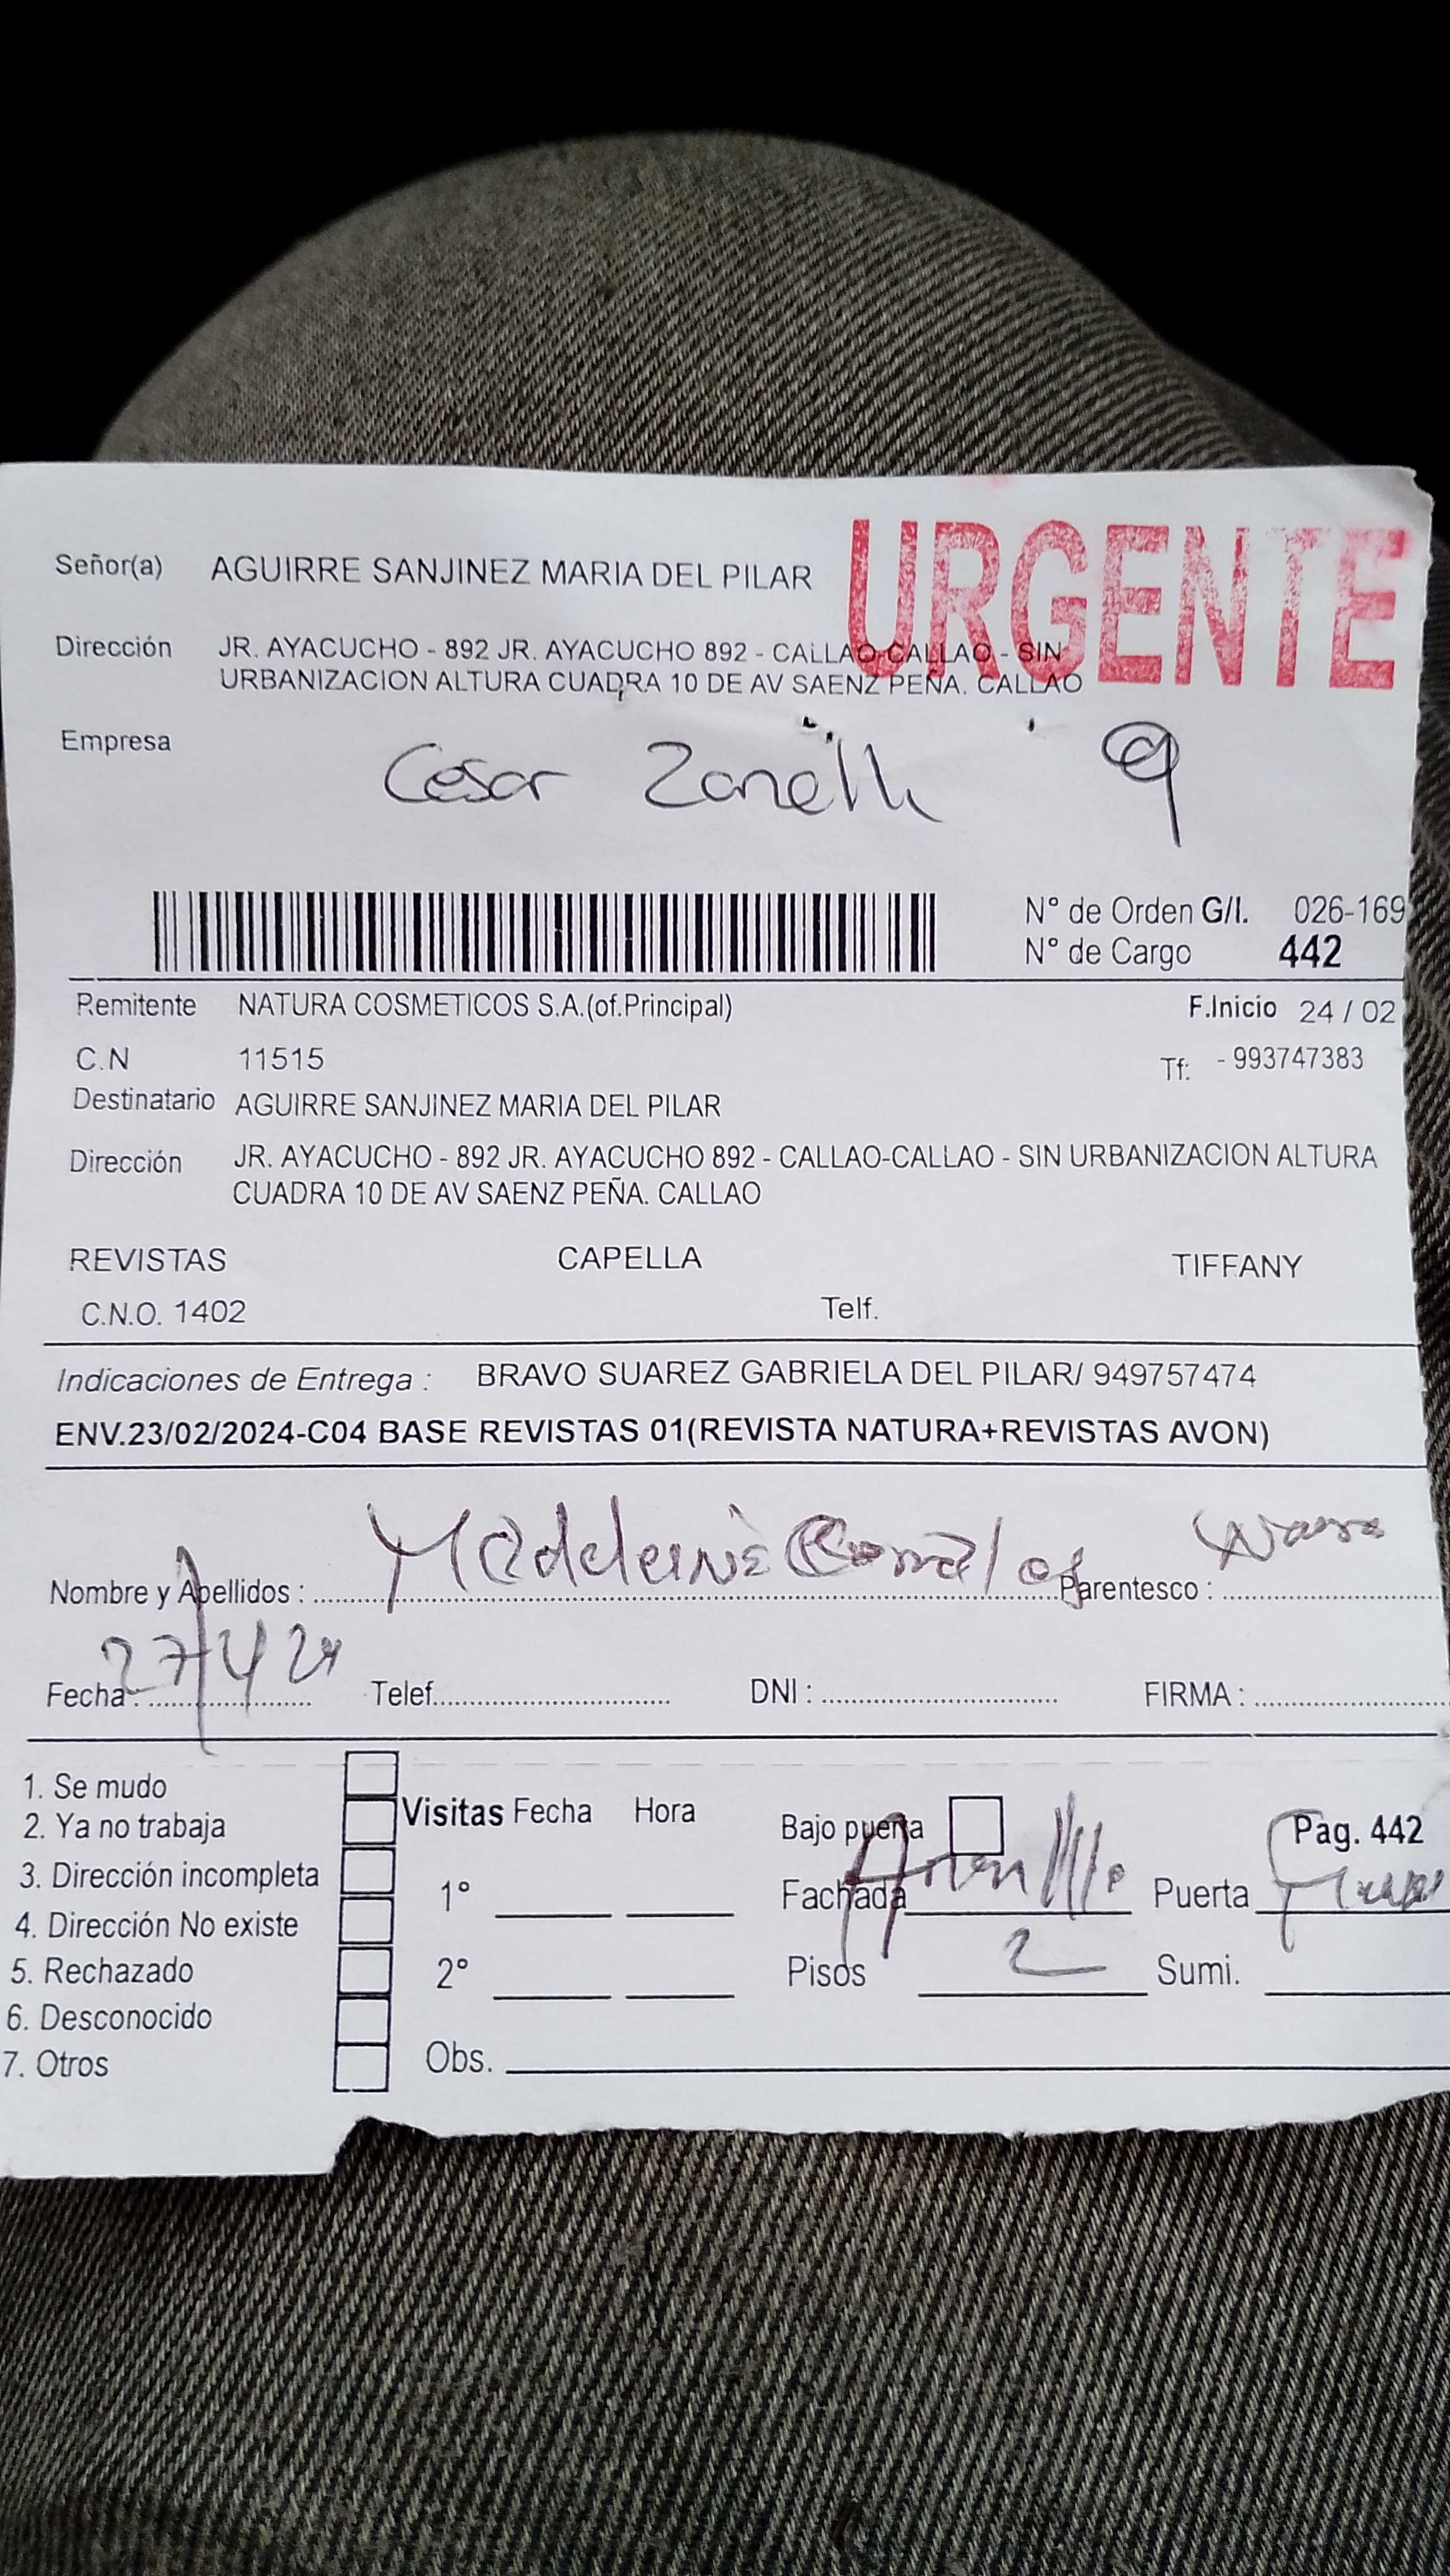 URGENTE
Señor(a) AGUIRRE SANJINEZ MARIA DEL PILAR
Dirección JR. AYACUCHO - 892 JR. AYACUCHO 892 - CALLAO-CALLAO - SIN
URBANIZACION ALTURA CUADRA 10 DE AV SAENZ PEÑA. CALLAO
Empresa
Cesar Zanelli 9
N° de Orden G/I. 026-169
N° de Cargo 442
Remitente NATURA COSMETICOS S.A.(of.Principal) F.Inicio 24 / 02
C.N 11515 Tf: - 993747383
Destinatario AGUIRRE SANJINEZ MARIA DEL PILAR
Dirección JR. AYACUCHO - 892 JR. AYACUCHO 892 - CALLAO-CALLAO - SIN URBANIZACION ALTURA
CUADRA 10 DE AV SAENZ PEÑA. CALLAO
REVISTAS CAPELLA TIFFANY
C.N.O. 1402 Telf.
Indicaciones de Entrega : BRAVO SUAREZ GABRIELA DEL PILAR/ 949757474
ENV.23/02/2024-C04 BASE REVISTAS 01(REVISTA NATURA+REVISTAS AVON)
Nombre y Apellidos : Madeleine Parentesco :
Fecha : Telef. DNI : FIRMA :
1. Se mudo
2. Ya no trabaja
3. Dirección incompleta
4. Dirección No existe
5. Rechazado
6. Desconocido
7. Otros
Visitas Fecha Hora
1°
2°
Obs.
Bajo puerta Pag. 442
Fachada Puerta
Pisos 2 Sumi.